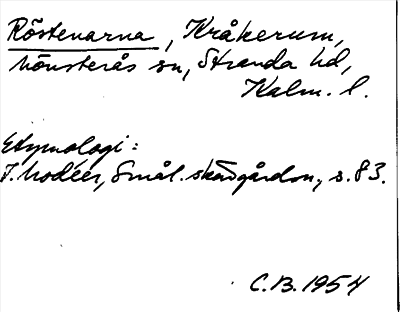 Röstenarna, Kråkerum,
Mönsterås sn, Stranda hd,
Kalm. l.
Etymologi:
I. Modéer, Smål. skärgårdsn., s. 83.
C.B. 1954